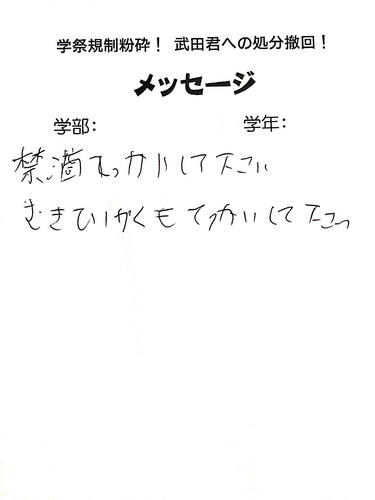 学祭規制粉砕! 武田君への処分撤回!
メッセージ
学部: 学年:
禁酒てっかいして下さい
もてっかいして下さい